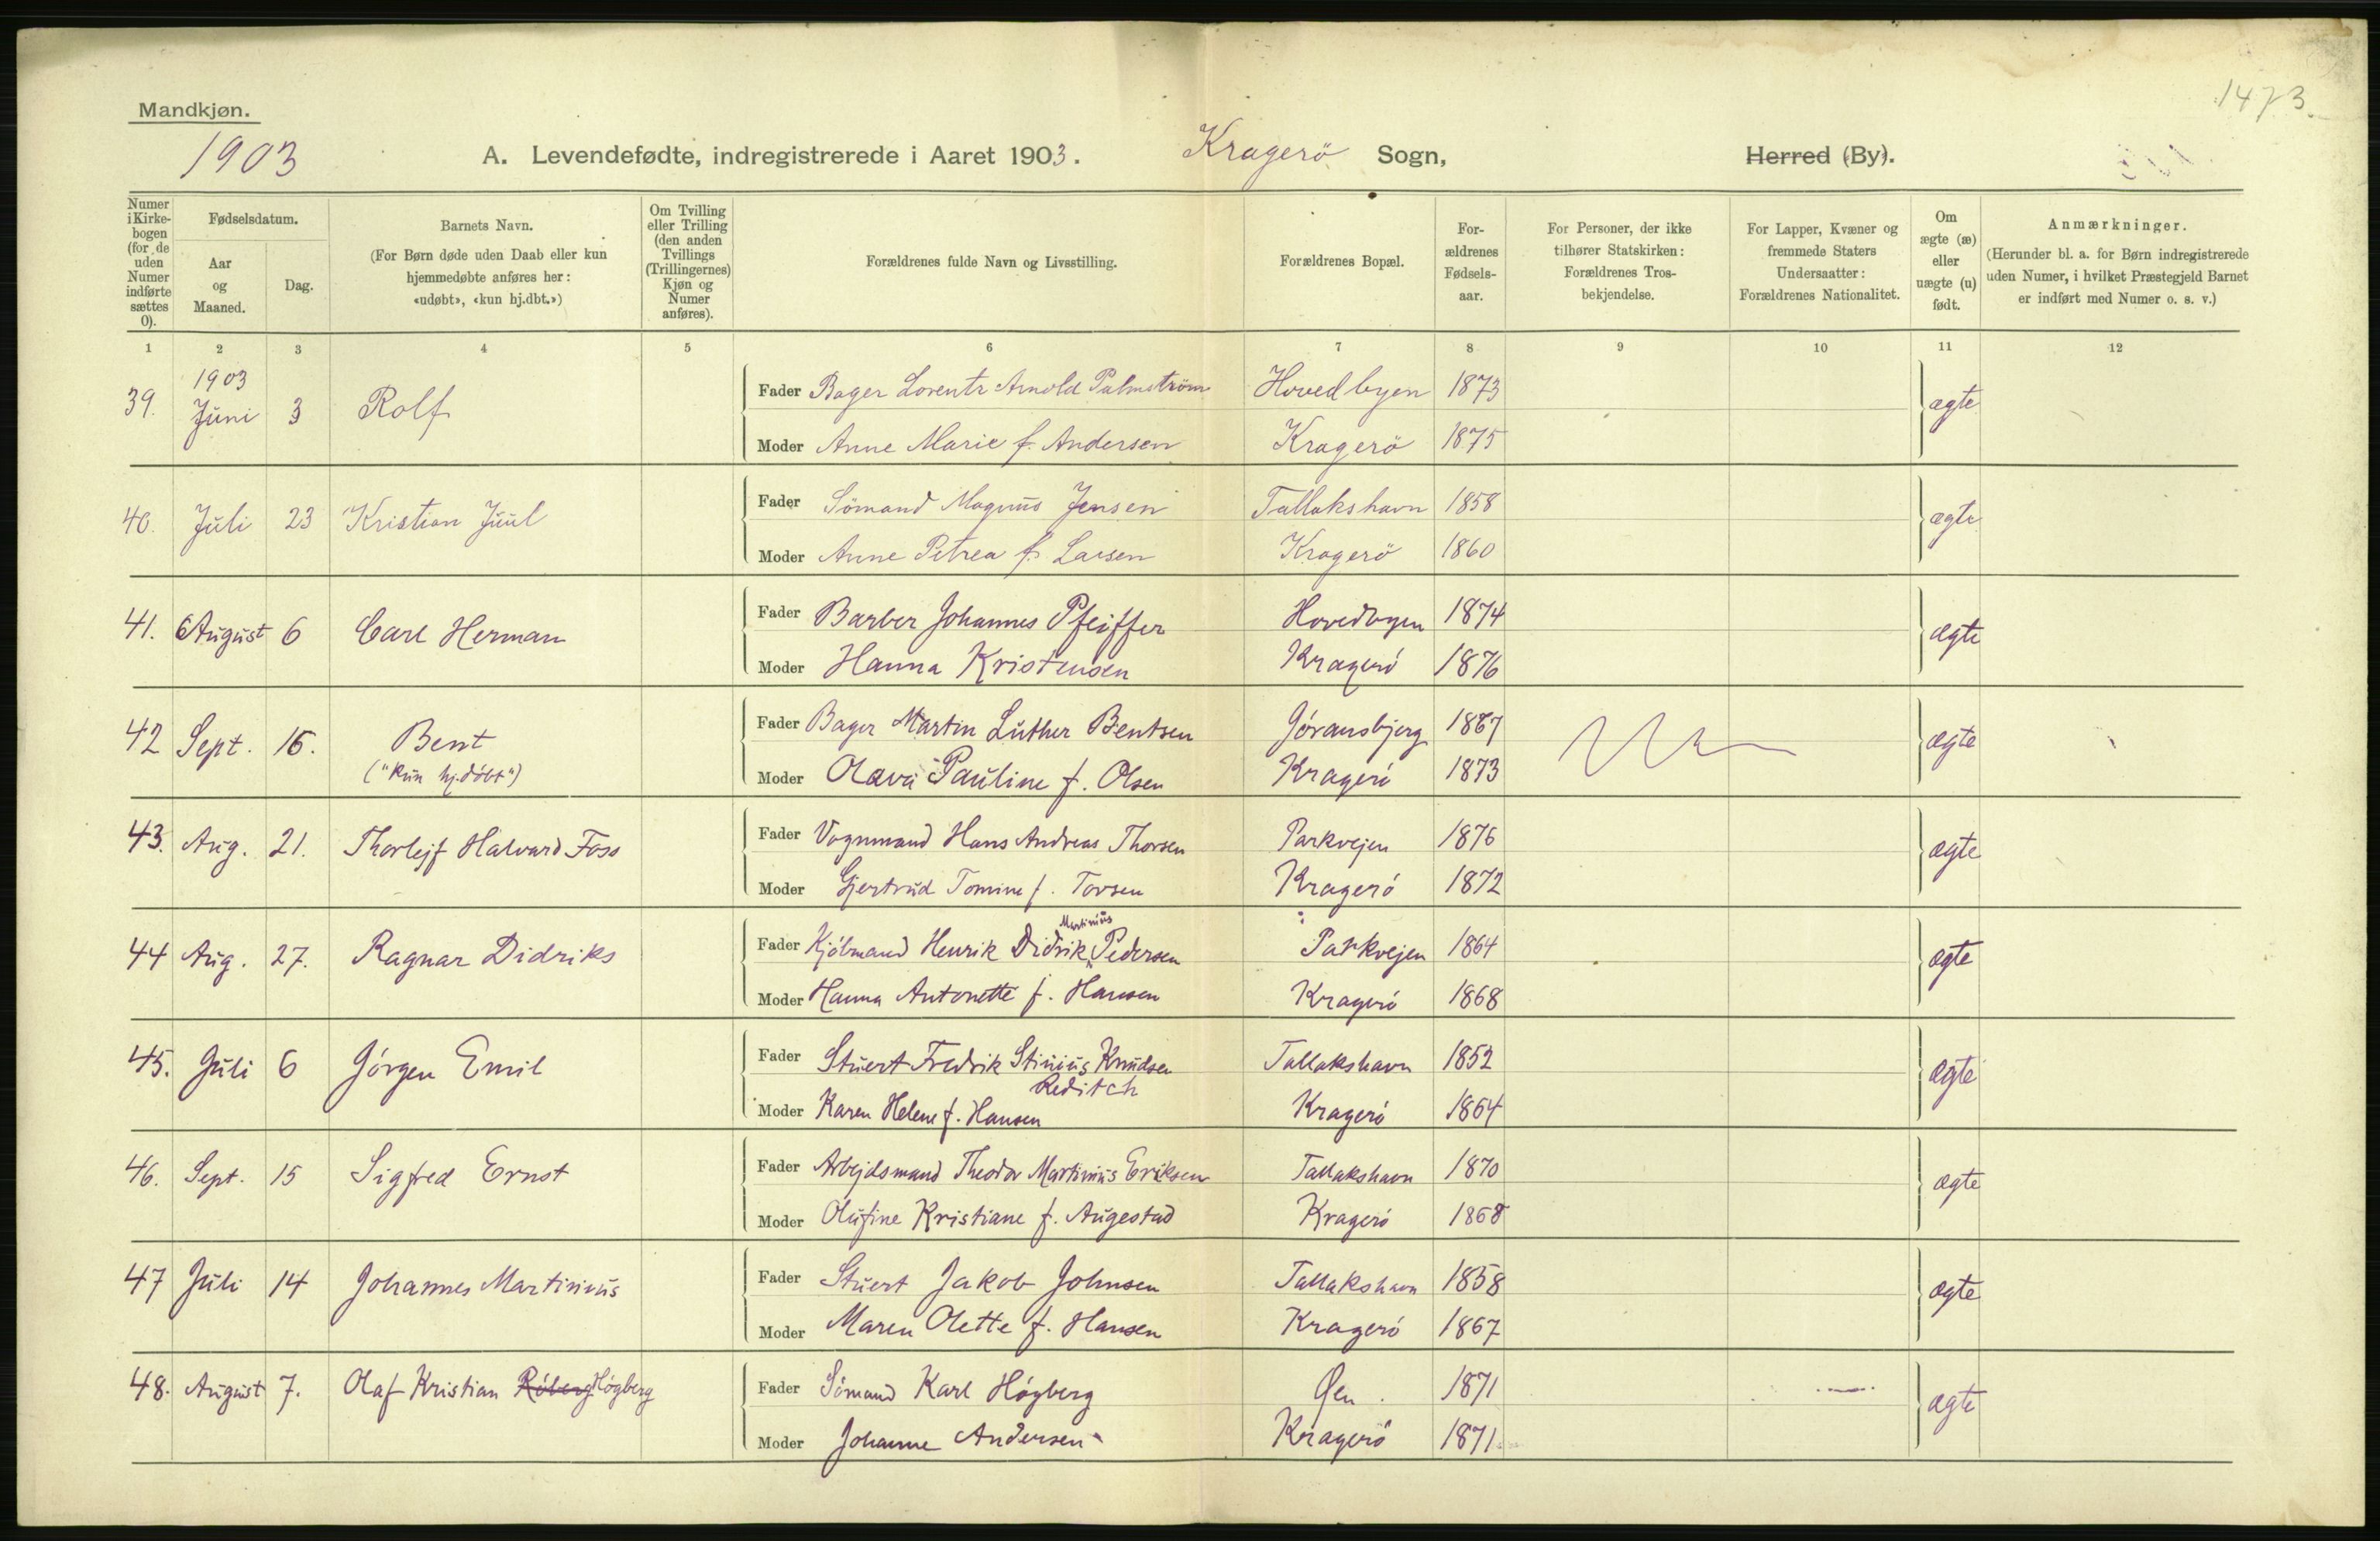 1473.
Mandkjøn.
1903
A. Levendefødte, indregistrerede i Aaret 1903. Kragerö Sogn, Herred (By).
Numer i Kirke-bogen (for de uden Numer indførte sættes 0).
Fødselsdatum.
Aar og Maaned.
Dag.
Barnets Navn.
(For Børn døde uden Daab eller kun hjemmedøbte anføres her: «udøbt», «kun hj.dbt.»)
Om Tvilling eller Trilling (den anden Tvillings (Trillingernes) Kjøn og Numer anføres).
Forældrenes fulde Navn og Livsstilling.
Forældrenes Bopæl.
For-ældrenes Fødsels-aar.
For Personer, der ikke tilhører Statskirken: Forældrenes Tros-bekjendelse.
For Lapper, Kvæner og fremmede Staters Undersaatter: Forældrenes Nationalitet.
Om ægte (æ) eller uægte (u) født.
Anmærkninger.
(Herunder bl. a. for Børn indregistrerede uden Numer, i hvilket Præstegjeld Barnet er indført med Numer o. s. v.)
1 2 3 4 5 6 7 8 9 10 11 12
39. 1903 Juni 3 Rolf Fader Bager Lorentz Arnold Palmström Hovedbyen 1873 ægte
Moder Anne Marie f. Andersen Kragerö 1875
40. Juli 23 Kristian Juul Fader Sömand Magnus Jensen Tallakshavn 1858 ægte
Moder Anne Petrea f. Larsen Kragerö 1860
41. August 6 Carl Herman Fader Barber Johannes Pfeiffer Hovedbyen 1874 ægte
Moder Hanna Kristensen Kragerö 1876
42 Sept. 16. Bent Fader Bager Martin Luther Bentsen Jóransbjerg 1867 ægte
("Kun hj.döbt") Moder Olava Pauline f. Olsen Kragerö 1873
43. Aug. 21. Thorlejf Halvard Foss Fader Vognmand Hans Andreas Thorsen Parkvejen 1876 ægte
Moder Gjertrud Tomine f. Torsen Kragerö 1872
44 Aug. 27. Ragnar Didriks Fader Kjölmand Henrik Didrik Martinius Pedersen Parkvejen 1864 ægte
Moder Hanna Antonette f. Hansen Kragerö 1868
45. Juli 6 Jörgen Emil Fader Stuert Fredrik Stinius Knudsen Reditch Tallakshavn 1852 ægte
Moder Karen Helene f. Hansen Kragerö 1864
46. Sept. 15 Sigfred Ernst Fader Arbejdsmand Theodor Martinius Eriksen Tallakshavn 1870 ægte
Moder Olufine Kristiane f. Augestad Kragerö 1868
47 Juli 14 Johannes Martinius Fader Stuert Jakob Johnsen Tallakshavn 1858 ægte
Moder Maren Olette f. Hansen Kragerö 1867
48. August 7. Olaf Kristian Röberg Högberg Fader Sömand Karl Högberg Øen. 1871 ægte
Moder Johanne Andersen Kragerö 1871